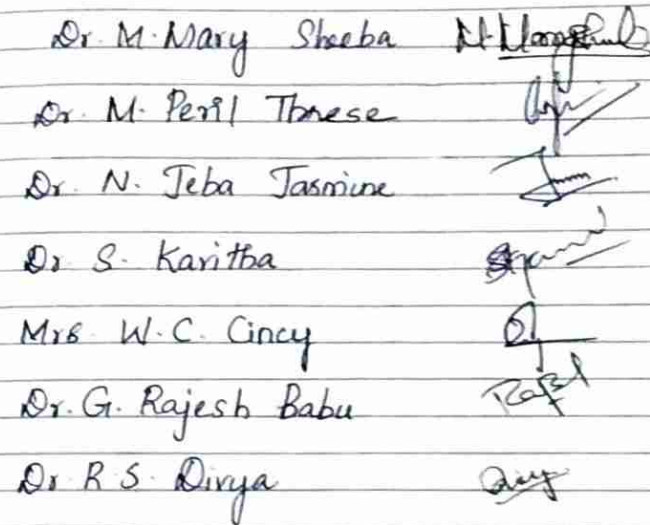 Dr. M. Mary Sheeba
Dr. M. Peril Threse
Dr. N. Jeba Jasmine
Dr. S. Kavitha
Mrs. W. C. Cincy
Dr. G. Rajesh Babu
Dr. R. S. Divya